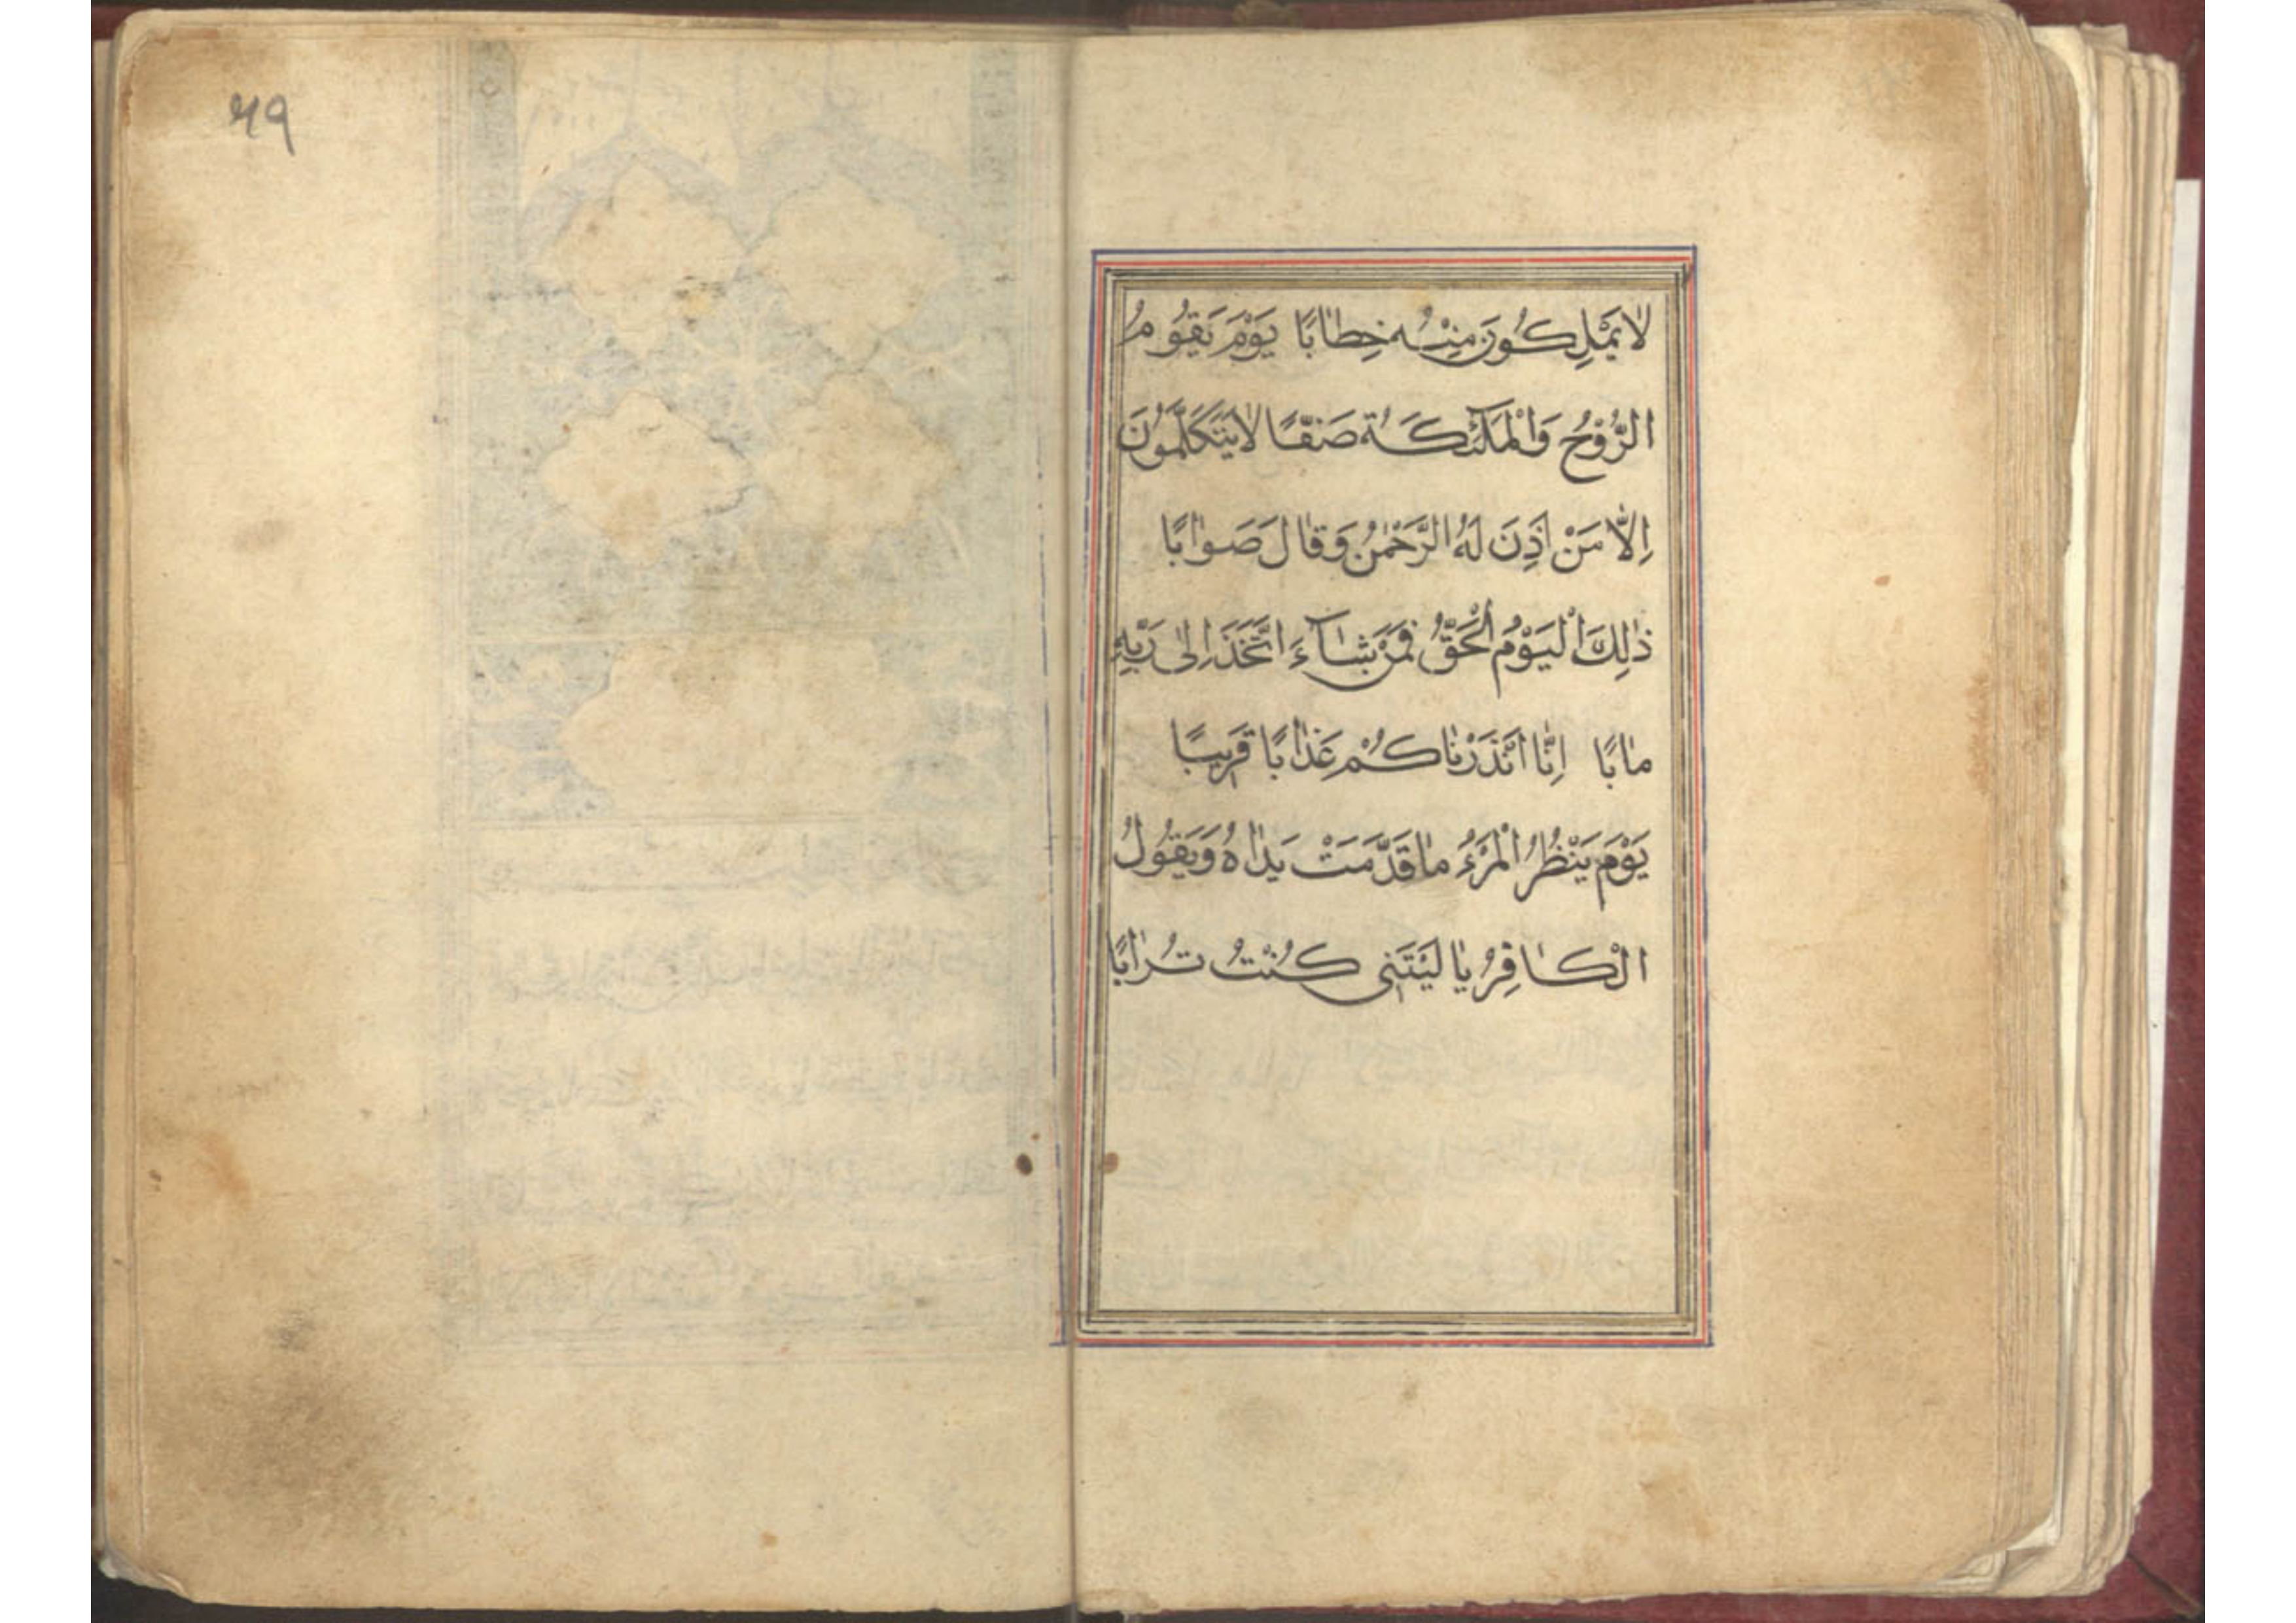 لٰا يَمْلِكُونَ مِنْهُ خِطٰابًا يَوْمَ يَقُومُ
الرُّوْحُ وَالْمَلٰئِكَةُ صَفًّا لٰا يَتَكَلَّمُوْنَ
اِلّٰا مَنْ اَذِنَ لَهُ الرَّحْمٰنُ وَقٰالَ صَوٰابًا
ذٰلِكَ الْيَوْمُ الْحَقُّ فَمَنْ شٰآءَ اتَّخَذَ اِلٰى رَبِّهِ
مٰابًا اِنّٰا اَنْذَرْنٰاكُمْ عَذٰابًا قَرِيبًا
يَوْمَ يَنْظُرُ الْمَرْءُ مٰا قَدَّمَتْ يَدٰاهُ وَيَقُولُ
الْكٰافِرُ يٰا لَيْتَنِى كُنْتُ تُرٰابًا